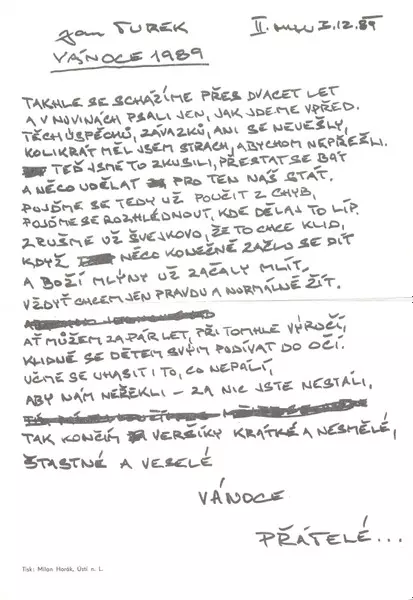 Jan TUREK II. 3.12.89
VÁNOCE 1989
TAKHLE SE SCHÁZÍME PŘES DVACET LET
A V NOVINÁCH PSALI JEN, JAK JDEME VPŘED.
TĚCH ÚSPĚCHŮ, ZÁVAZKŮ, ANI SE NEVEŠLY,
KOLIKRÁT MĚL JSEM STRACH, ABYCHOM NEPŘEŠLI.
TEĎ JSME TO ZKUSILI, PŘESTAT SE BÁT
A NĚCO UDĚLAT PRO TEN NÁŠ STÁT.
POJĎME SE TEDY UŽ POUČIT Z CHYB,
POJĎME SE ROZHLÉDNOUT, KDE DĚLAJ TO LÍP.
ZRUŠME UŽ ŠVEJKOVO, ŽE TO CHCE KLID,
KDYŽ NĚCO KONEČNĚ ZAČLO SE DÍT
A BOŽÍ MLÝNY UŽ ZAČALY MLÍT,
VŽDYŤ CHCEM JEN PRAVDU A NORMÁLNĚ ŽÍT.
AŤ MŮŽEM ZA PÁR LET, PŘI TOMHLE VÝROČÍ,
KLIDNĚ SE DĚTEM SVÝM PODÍVAT DO OČÍ.
UČME SE UHASIT I TO, CO NEPÁLÍ,
ABY NÁM NEŘEKLI – ZA NIC JSTE NESTÁLI,
TAK KONČÍM VERŠÍKY KRÁTKÉ A NESMĚLÉ,
ŠŤASTNÉ A VESELÉ
VÁNOCE
PŘÁTELÉ...
Tisk: Milan Horák, Ústí n. L.